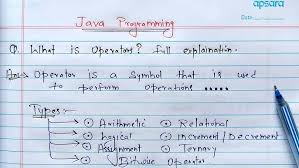 apsara
Date:
Java Programming
Q. What is Operators? full explaination.
Ans→ Operator is a Symbol that is used
to perform operations .....
Types:-
→ ⊙ Arithmetic ⊙ Relational
→ ⊙ Logical ⊙ Increment/Decrement
→ ⊙ Assignment ⊙ Ternary
→ ⊙ Bitwise Operator